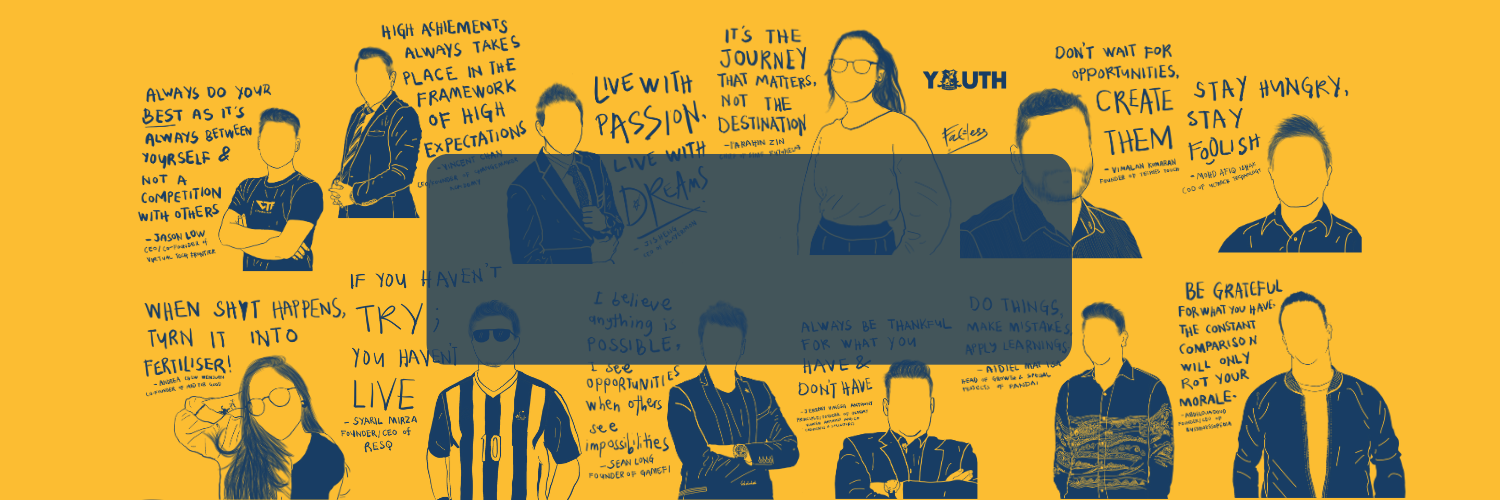 ALWAYS DO YOUR
BEST AS IT'S
ALWAYS BETWEEN
YOURSELF &
NOT A
COMPETITION
WITH OTHERS
- JASON LOW
CEO/CO-FOUNDER of
VIRTUAL TECH FRONTIER
HIGH ACHIEMENTS
ALWAYS TAKES
PLACE IN THE
FRAMEWORK
OF HIGH
EXPECTATIONS
LIVE WITH
PASSION.
LIVE WITH
DREAMS
IT'S THE
JOURNEY
THAT MATTERS,
NOT THE
DESTINATION
- FARAHIN ZIN
YOUTH
Faceless
DON'T WAIT FOR
OPPORTUNITIES,
CREATE
THEM
- VIMALAN KUMARAN
STAY HUNGRY,
STAY
FOOLISH
WHEN SHYT HAPPENS,
TURN IT INTO
FERTILISER!
IF YOU HAVEN'T
TRY;
YOU HAVEN'T
LIVE
- SYARIL MIRZA
FOUNDER/CEO of
RESQ
I believe
anything is
POSSIBLE,
I see
OPPORTUNITIES
when others
see
impossibilities
- SEAN LONG
FOUNDER OF GAMEFI
ALWAYS BE THANKFUL
FOR WHAT YOU
HAVE &
DON'T HAVE
DO THINGS,
MAKE MISTAKES,
APPLY LEARNINGS
HEAD OF GROWTH & SPECIAL
PROJECTS OF PANDAI
BE GRATEFUL
FOR WHAT YOU HAVE.
THE CONSTANT
COMPARISON
WILL ONLY
ROT YOUR
MORALE.
10